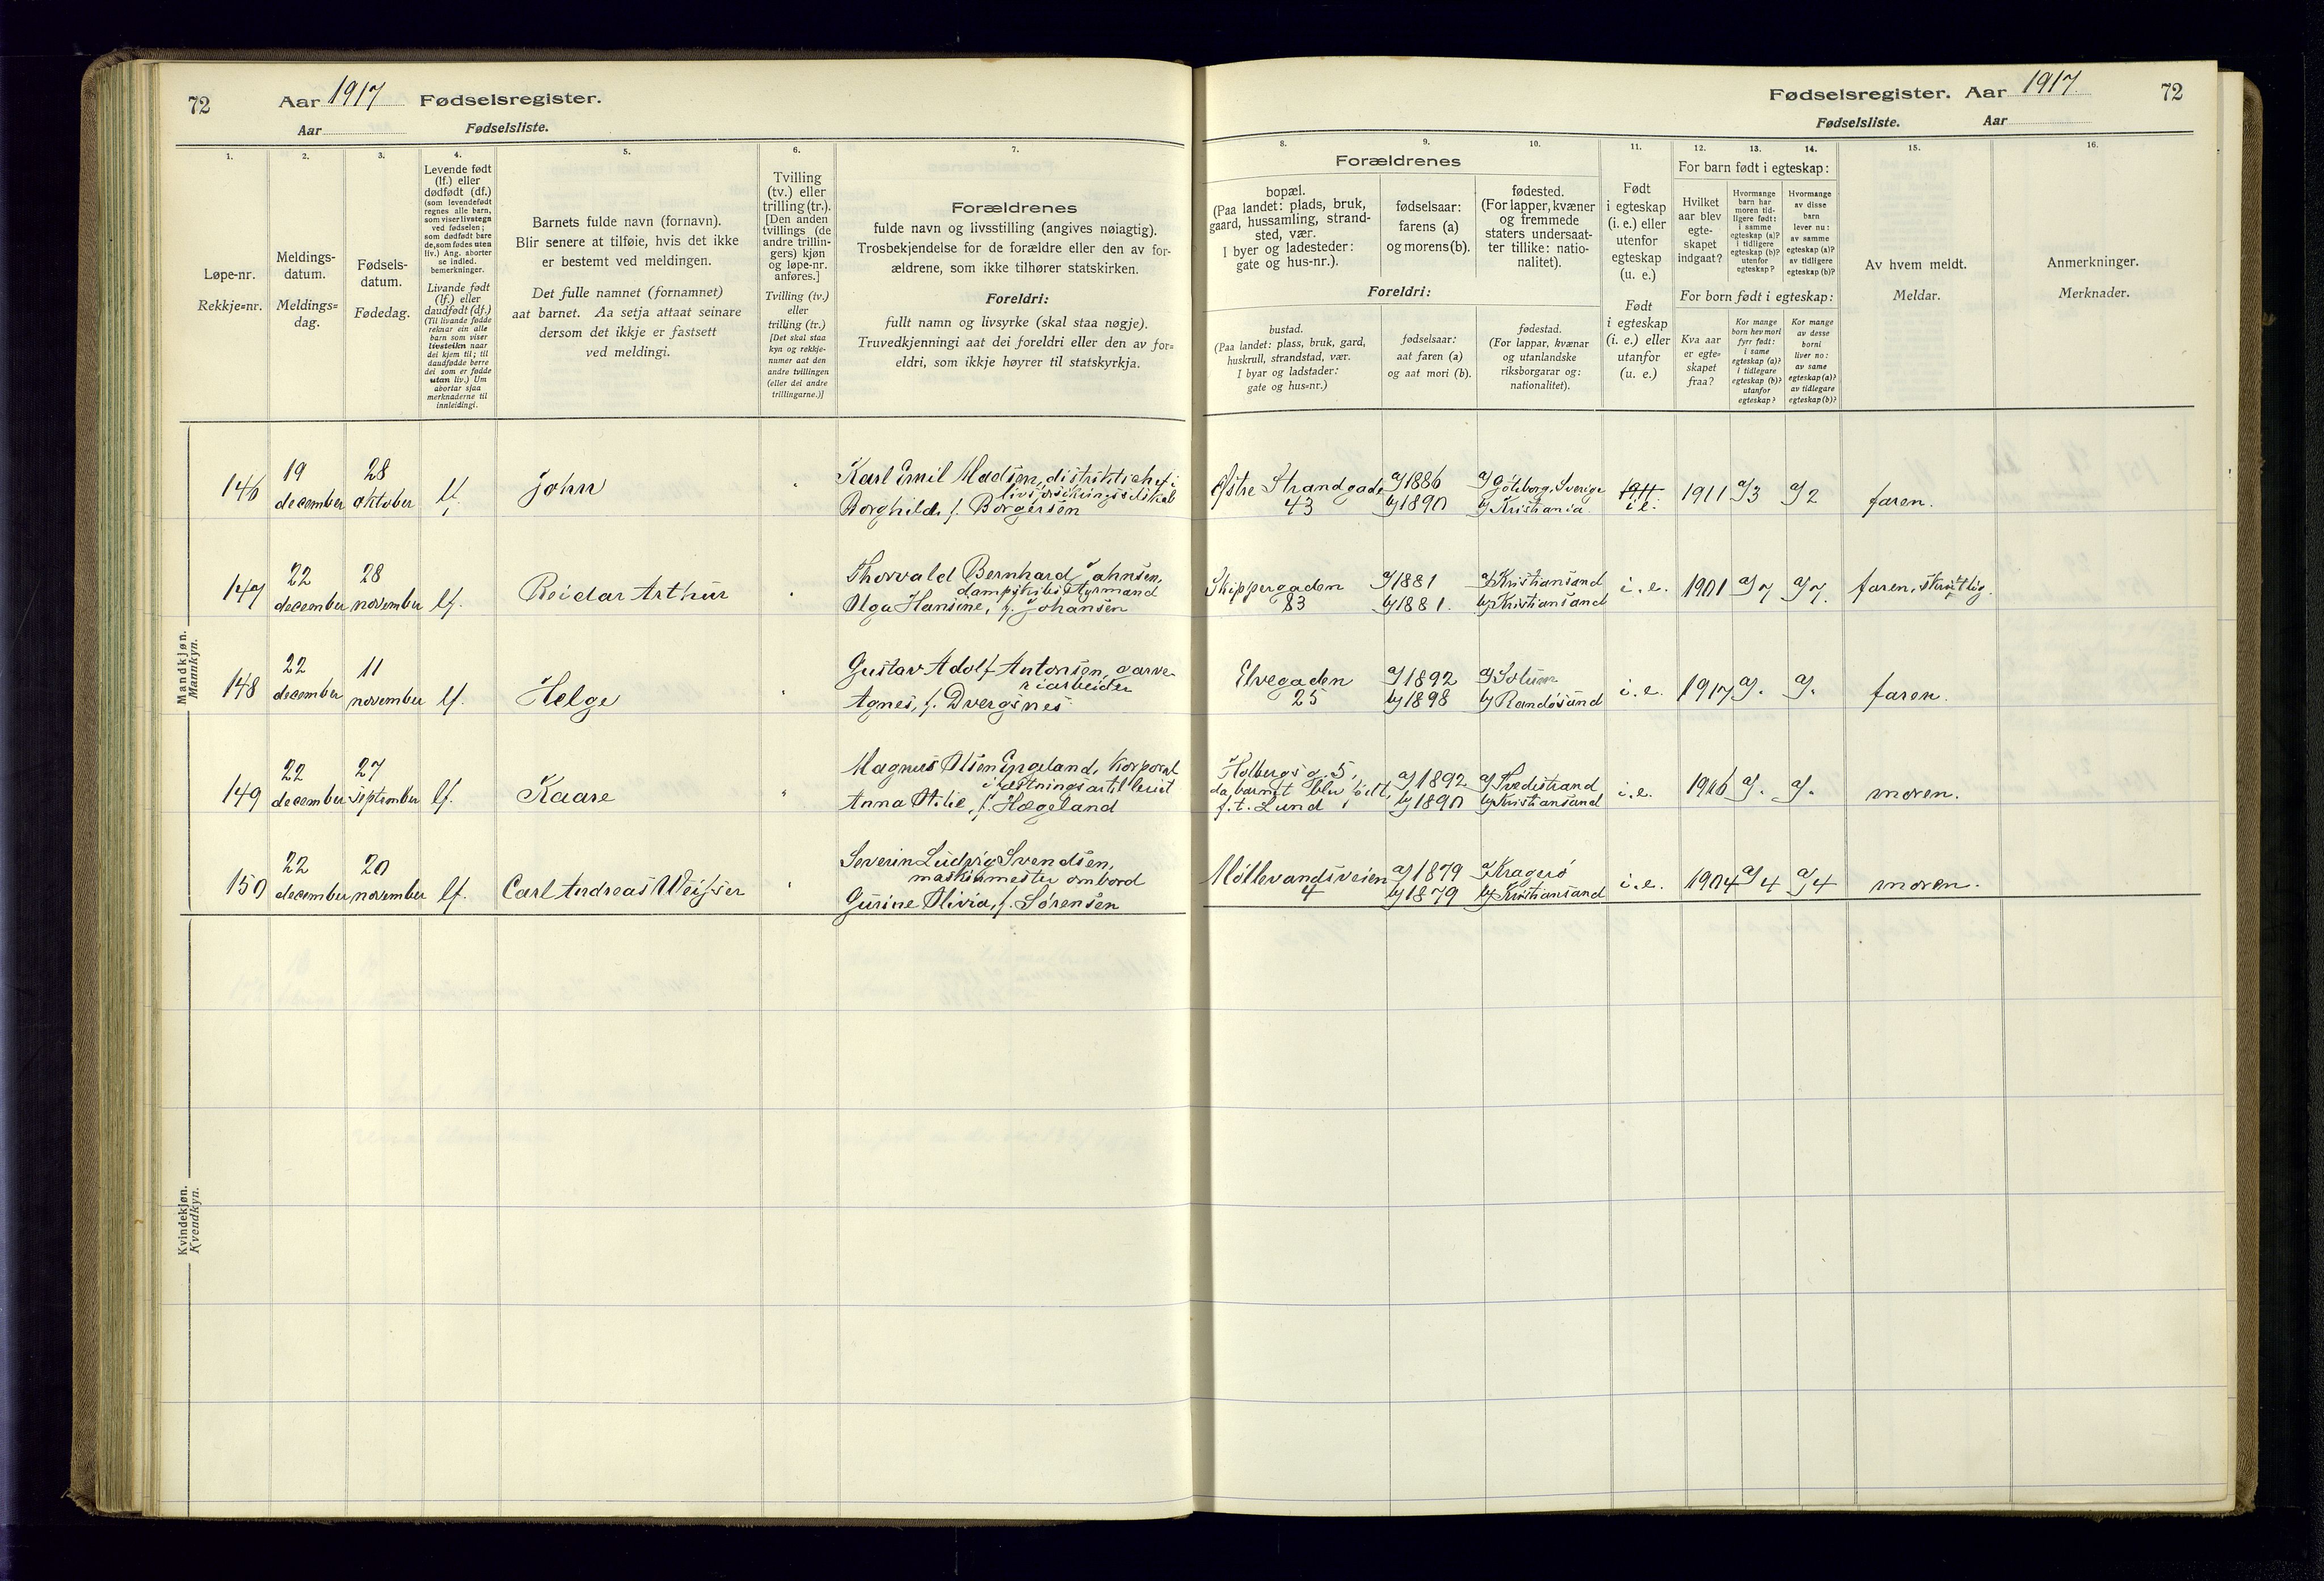 72 Aar 1917 Fødselsregister.
Aar Fødselsliste.
Fødselsregister. Aar 1917. 72
Fødselsliste. Aar
1.
Løpe-nr.
Rekkje=nr.
2.
Meldings-
datum.
Meldings=
dag.
3.
Fødsels-
datum.
Fødedag.
4.
Levende født
(lf.) eller
dødfødt (df.)
(som levendefødt
regnes alle barn,
som viser livstegn
ved fødselen;
som dødfødt bare
de, som fødes uten
liv.) Ang. aborter
se indled.
bemerkninger.
Livande født
(lf.) eller
daudfødt (df.)
(Til livande fødde
reknar ein alle
barn som viser
livsteikn naar
dei kjem til; til
daudfødde berre
dei som er fødde
utan liv.) Um
abortar sjaa
merknaderne til
innleidingi.
5.
Barnets fulde navn (fornavn).
Blir senere at tilføie, hvis det ikke
er bestemt ved meldingen.
Det fulle namnet (fornamnet)
aat barnet. Aa setja attaat seinare
dersom det ikkje er fastsett
ved meldingi.
6.
Tvilling
(tv.) eller
trilling (tr.).
[Den anden
tvillings (de
andre trillin-
gers) kjøn
og løpe-nr.
anføres.]
Tvilling (tv.)
eller
trilling (tr.)
[Det skal staa
kyn og rekkje-
numer aat den
andre tvillingen
(eller dei andre
trillingarne.)]
7.
Forældrenes
fulde navn og livsstilling (angives nøiagtig).
Trosbekjendelse for de forældre eller den av for-
ældrene, som ikke tilhører statskirken.
Foreldri:
fullt namn og livsyrke (skal staa nøgje).
Truvedkjenningi aat dei foreldri eller den av for=
eldri, som ikkje høyrer til statskyrkja.
8. 9. 10.
Forældrenes
bopæl.
(Paa landet: plads, bruk,
gaard, hussamling, strand-
sted, vær.
I byer og ladesteder:
gate og hus-nr.).
fødselsaar:
farens (a)
og morens (b).
fødested.
(For lapper, kvæner
og fremmede
staters undersaat-
ter tillike: natio-
nalitet).
Foreldri:
bustad.
(Paa landet: plass, bruk, gard,
huskrull, strandstad, vær.
I byar og ladstader:
gate og hus-nr.)
fødselsaar:
aat faren (a)
og aat mori (b).
fødestad.
(For lappar, kvænar
og utanlandske
riksborgarar og:
nationalitet).
11.
Født
i egteskap
(i. e.) eller
utenfor
egteskap
(u. e.)
Født
i egteskap
(i. e.) eller
utanfor
(u. e.)
12. 13. 14.
For barn født i egteskap:
Hvilket
aar blev
egte-
skapet
indgaat?
Hvormange
barn har
moren tid-
ligere født:
i samme
egteskap (a)?
i tidligere
egteskap (b)?
utenfor
egteskap?
Hvormange
av disse
barn
lever nu:
av samme
egteskap (a)?
av tidligere
egteskap (b)?
For born født i egteskap:
Kva aar
er egte=
skapet
fraa?
Kor mange
born hev mori
fyrr født:
i same
egteskap (a)?
i tidlegare
egteskap (b)?
utanfor
egteskap?
Kor mange
av desse
borni
liver no:
av same
egteskap (a)?
av tidlegare
egteskap (b)?
15.
Av hvem meldt.
Meldar.
16.
Anmerkninger.
Merknader.
Mandkjøn.
Mannkyn.
146 19 december 28 oktober lf. John
Karl Emil Madsen, distriktschef i
livsforsikringsselskab
Borghild, f. Borgersen
Østre Strandgade
43
a) 1886
b) 1890
a) Göteborg, Sverige
b) Kristiania
1911
i. e. 1911 a) 3 a) 2 faren.
147 22 december 28 november lf. Reidar Arthur
Thorvald Bernhard Jahnsen,
dampskibsstyrmand
Olga Hansine, f. Johansen
Skippergaden
83
a) 1881
b) 1881.
a) Kristiansand
b) Kristiansand
i. e. 1901 a) 7 a) 7. faren, skriftlig.
148 22 december 11 november lf. Helge
Gustav Adolf Antonsen, garve-
riarbeider
Agnes, f. Dvergsnes
Elvegaden
25
a) 1892
b) 1898
a)
b) Randøsund
i. e. 1917 a) - a) - faren.
149 22 december 27 september lf. Kaare
Magnus Olsen Engeland, korporal
i fæstningsartilleriet
Anna Otilie, f. Hægeland
Holbergs g. 5,
da barnet blev født,
f. t. Lund
a) 1892
b) 1890
a) Tvedestrand
b) Kristiansand
i. e. 1916 a) - a) - moren.
150 22 december 20 november lf. Carl Andreas Weisser
Severin Ludvig Svendsen,
maskinmester ombord
Gurine Olivia, f. Sørensen
Møllevandsveien
4
a) 1879
b) 1879
a) Kragerø
b) Kristiansand
i. e. 1904 a) 4 a) 4 moren.
Kvindekjøn.
Kvendkyn.